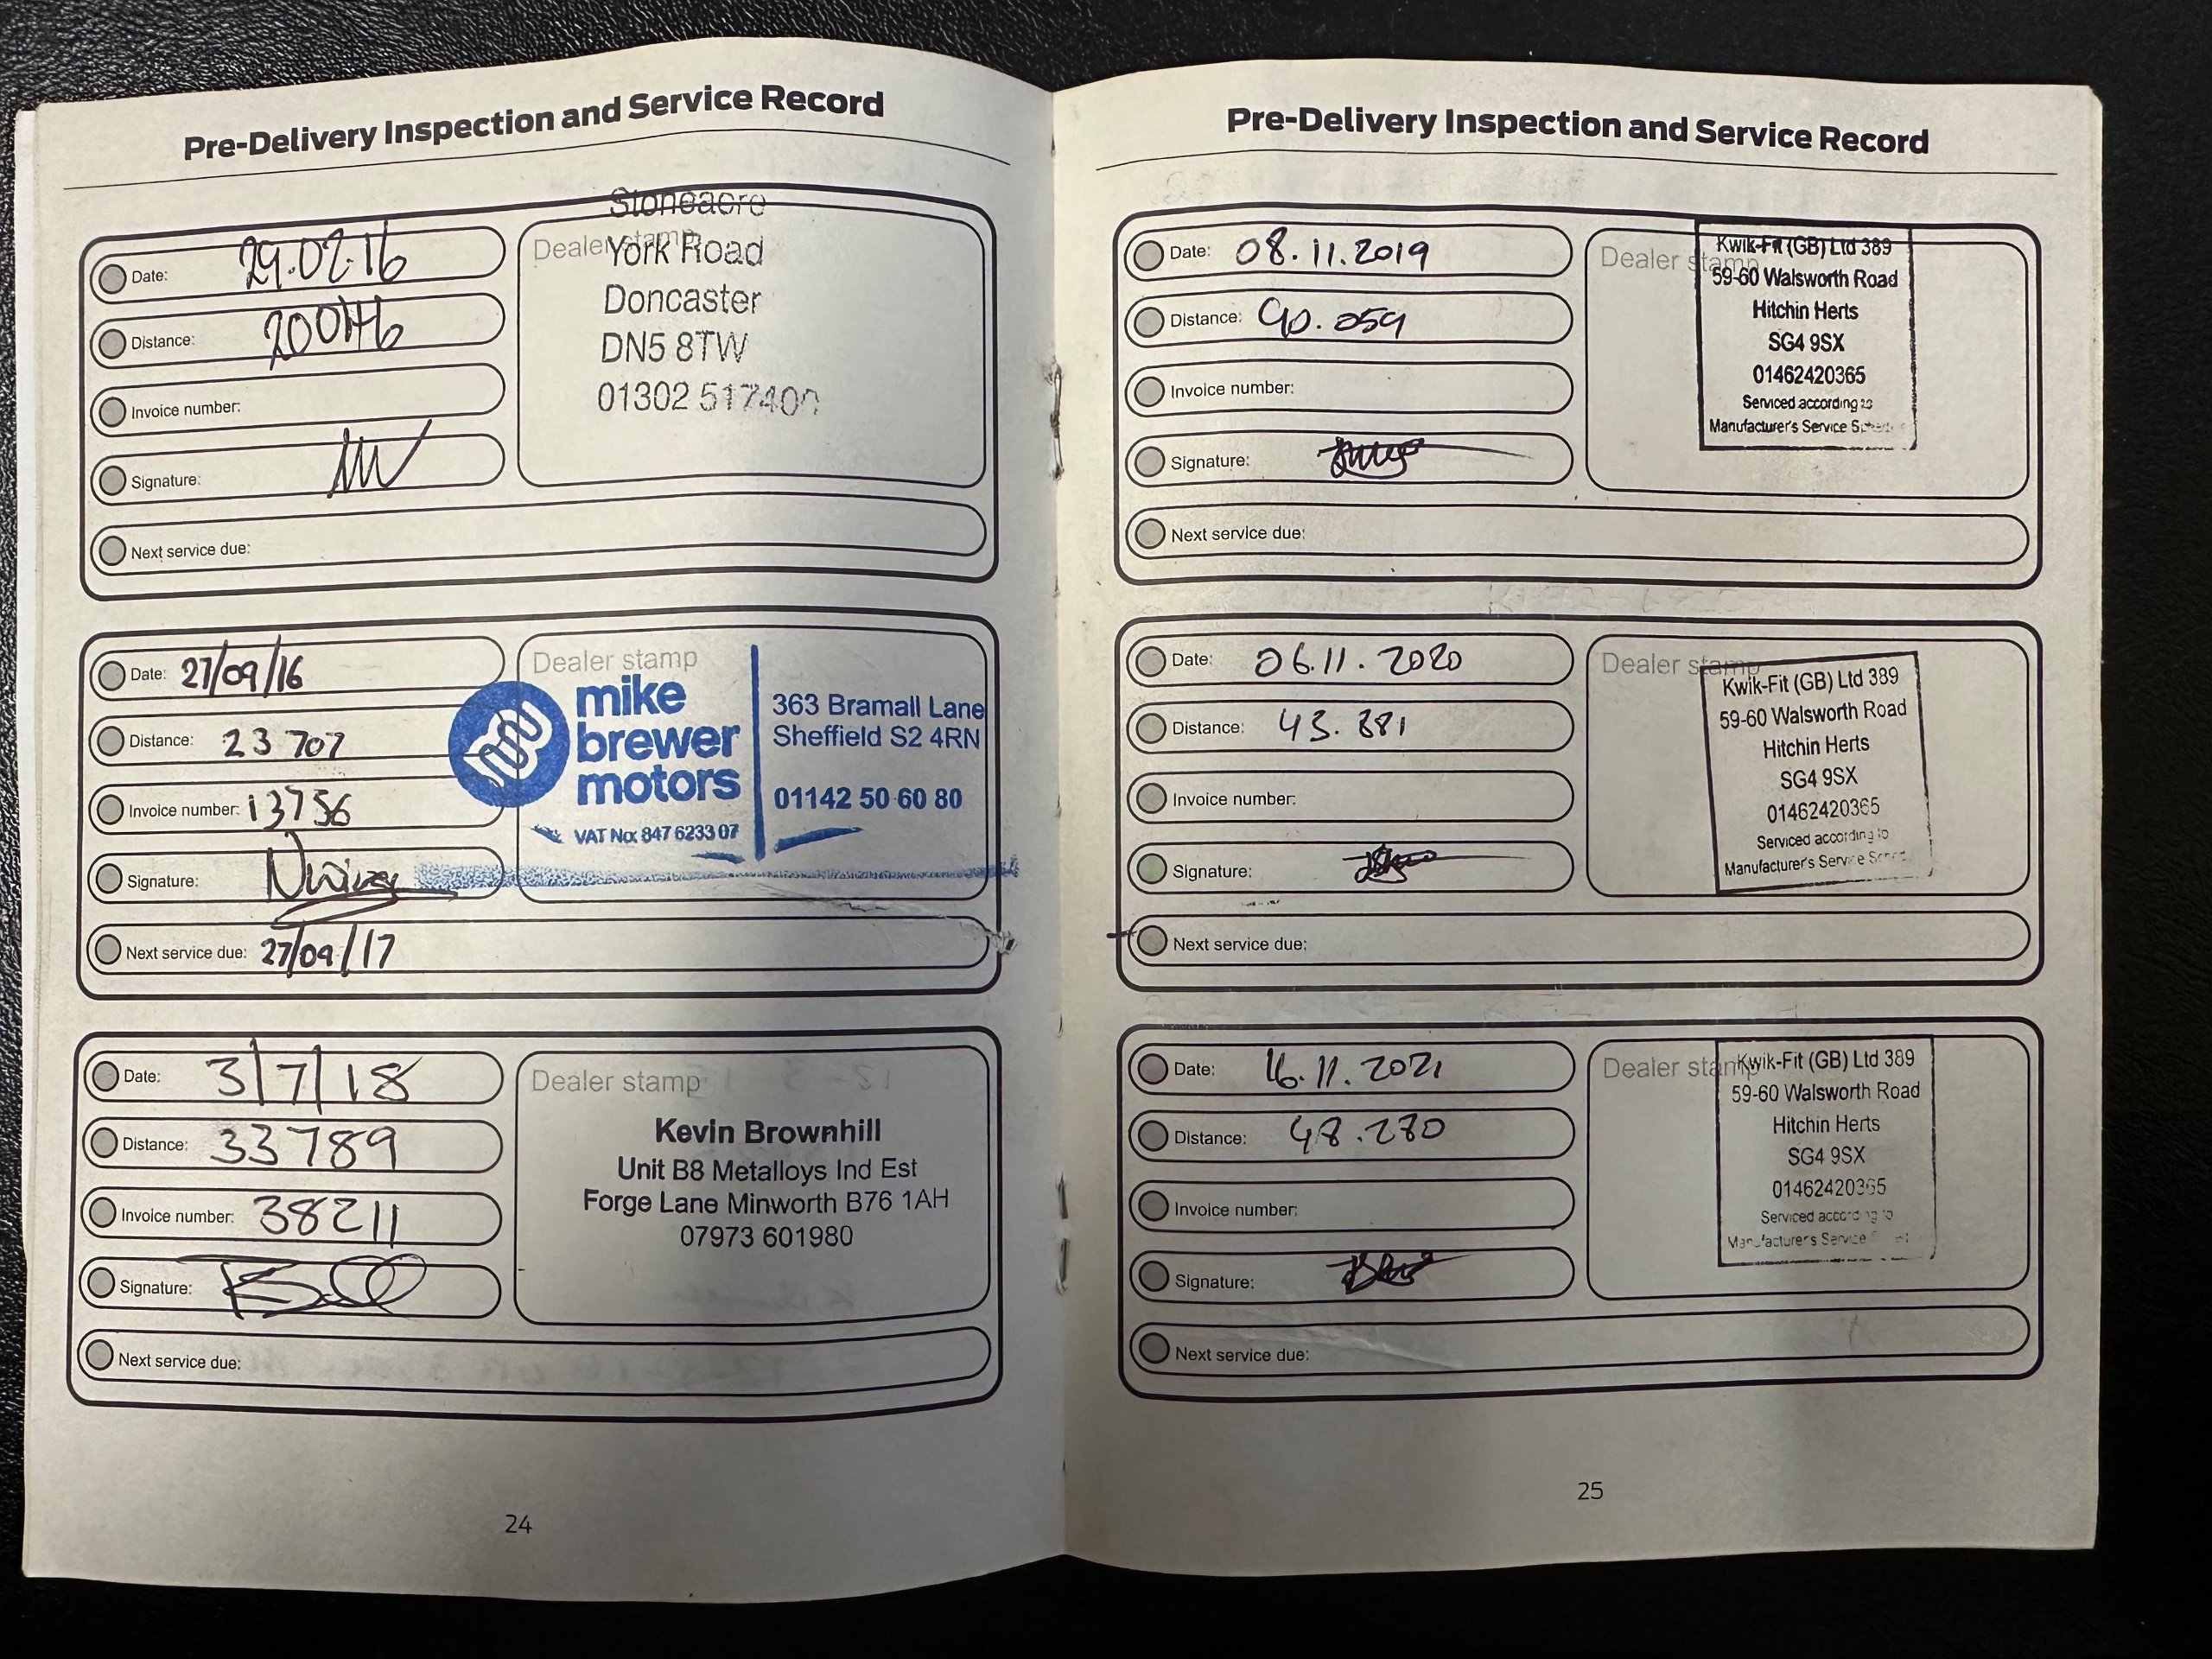 Pre-Delivery Inspection and Service Record
Date: 29.02.16
Distance:
Invoice number:
Signature:
Next service due:
Dealer stamp
Stoneacre
York Road
Doncaster
DN5 8TW
01302 517400
Date: 27/09/16
Distance: 23 707
Invoice number: 13756
Signature:
Next service due: 27/09/17
Dealer stamp
mike
brewer
motors
VAT No: 847 6233 07
363 Bramall Lane
Sheffield S2 4RN
01142 50 60 80
Date: 3/7/18
Distance: 33789
Invoice number: 38211
Signature:
Next service due:
Dealer stamp
Kevin Brownhill
Unit B8 Metalloys Ind Est
Forge Lane Minworth B76 1AH
07973 601980
24
Pre-Delivery Inspection and Service Record
Date: 08.11.2019
Distance: 40.059
Invoice number:
Signature:
Next service due:
Dealer stamp
Kwik-Fit (GB) Ltd 389
59-60 Walsworth Road
Hitchin Herts
SG4 9SX
01462420365
Serviced according to
Manufacturer's Service
Date: 06.11.2020
Distance: 43.881
Invoice number:
Signature:
Next service due:
Dealer stamp
Kwik-Fit (GB) Ltd 389
59-60 Walsworth Road
Hitchin Herts
SG4 9SX
01462420365
Serviced according to
Manufacturer's Service
Date: 16.11.2021
Distance: 48.280
Invoice number:
Signature:
Next service due:
Dealer stamp
Kwik-Fit (GB) Ltd 389
59-60 Walsworth Road
Hitchin Herts
SG4 9SX
01462420365
Serviced according to
Manufacturer's Service
25